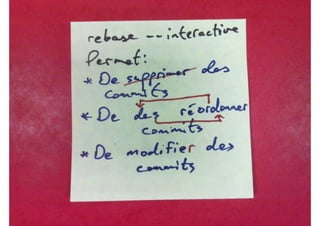 rebase --interactive
Permet:
* De supprimer des
commits
* De des réordonner
commits
* De modifier des
commits